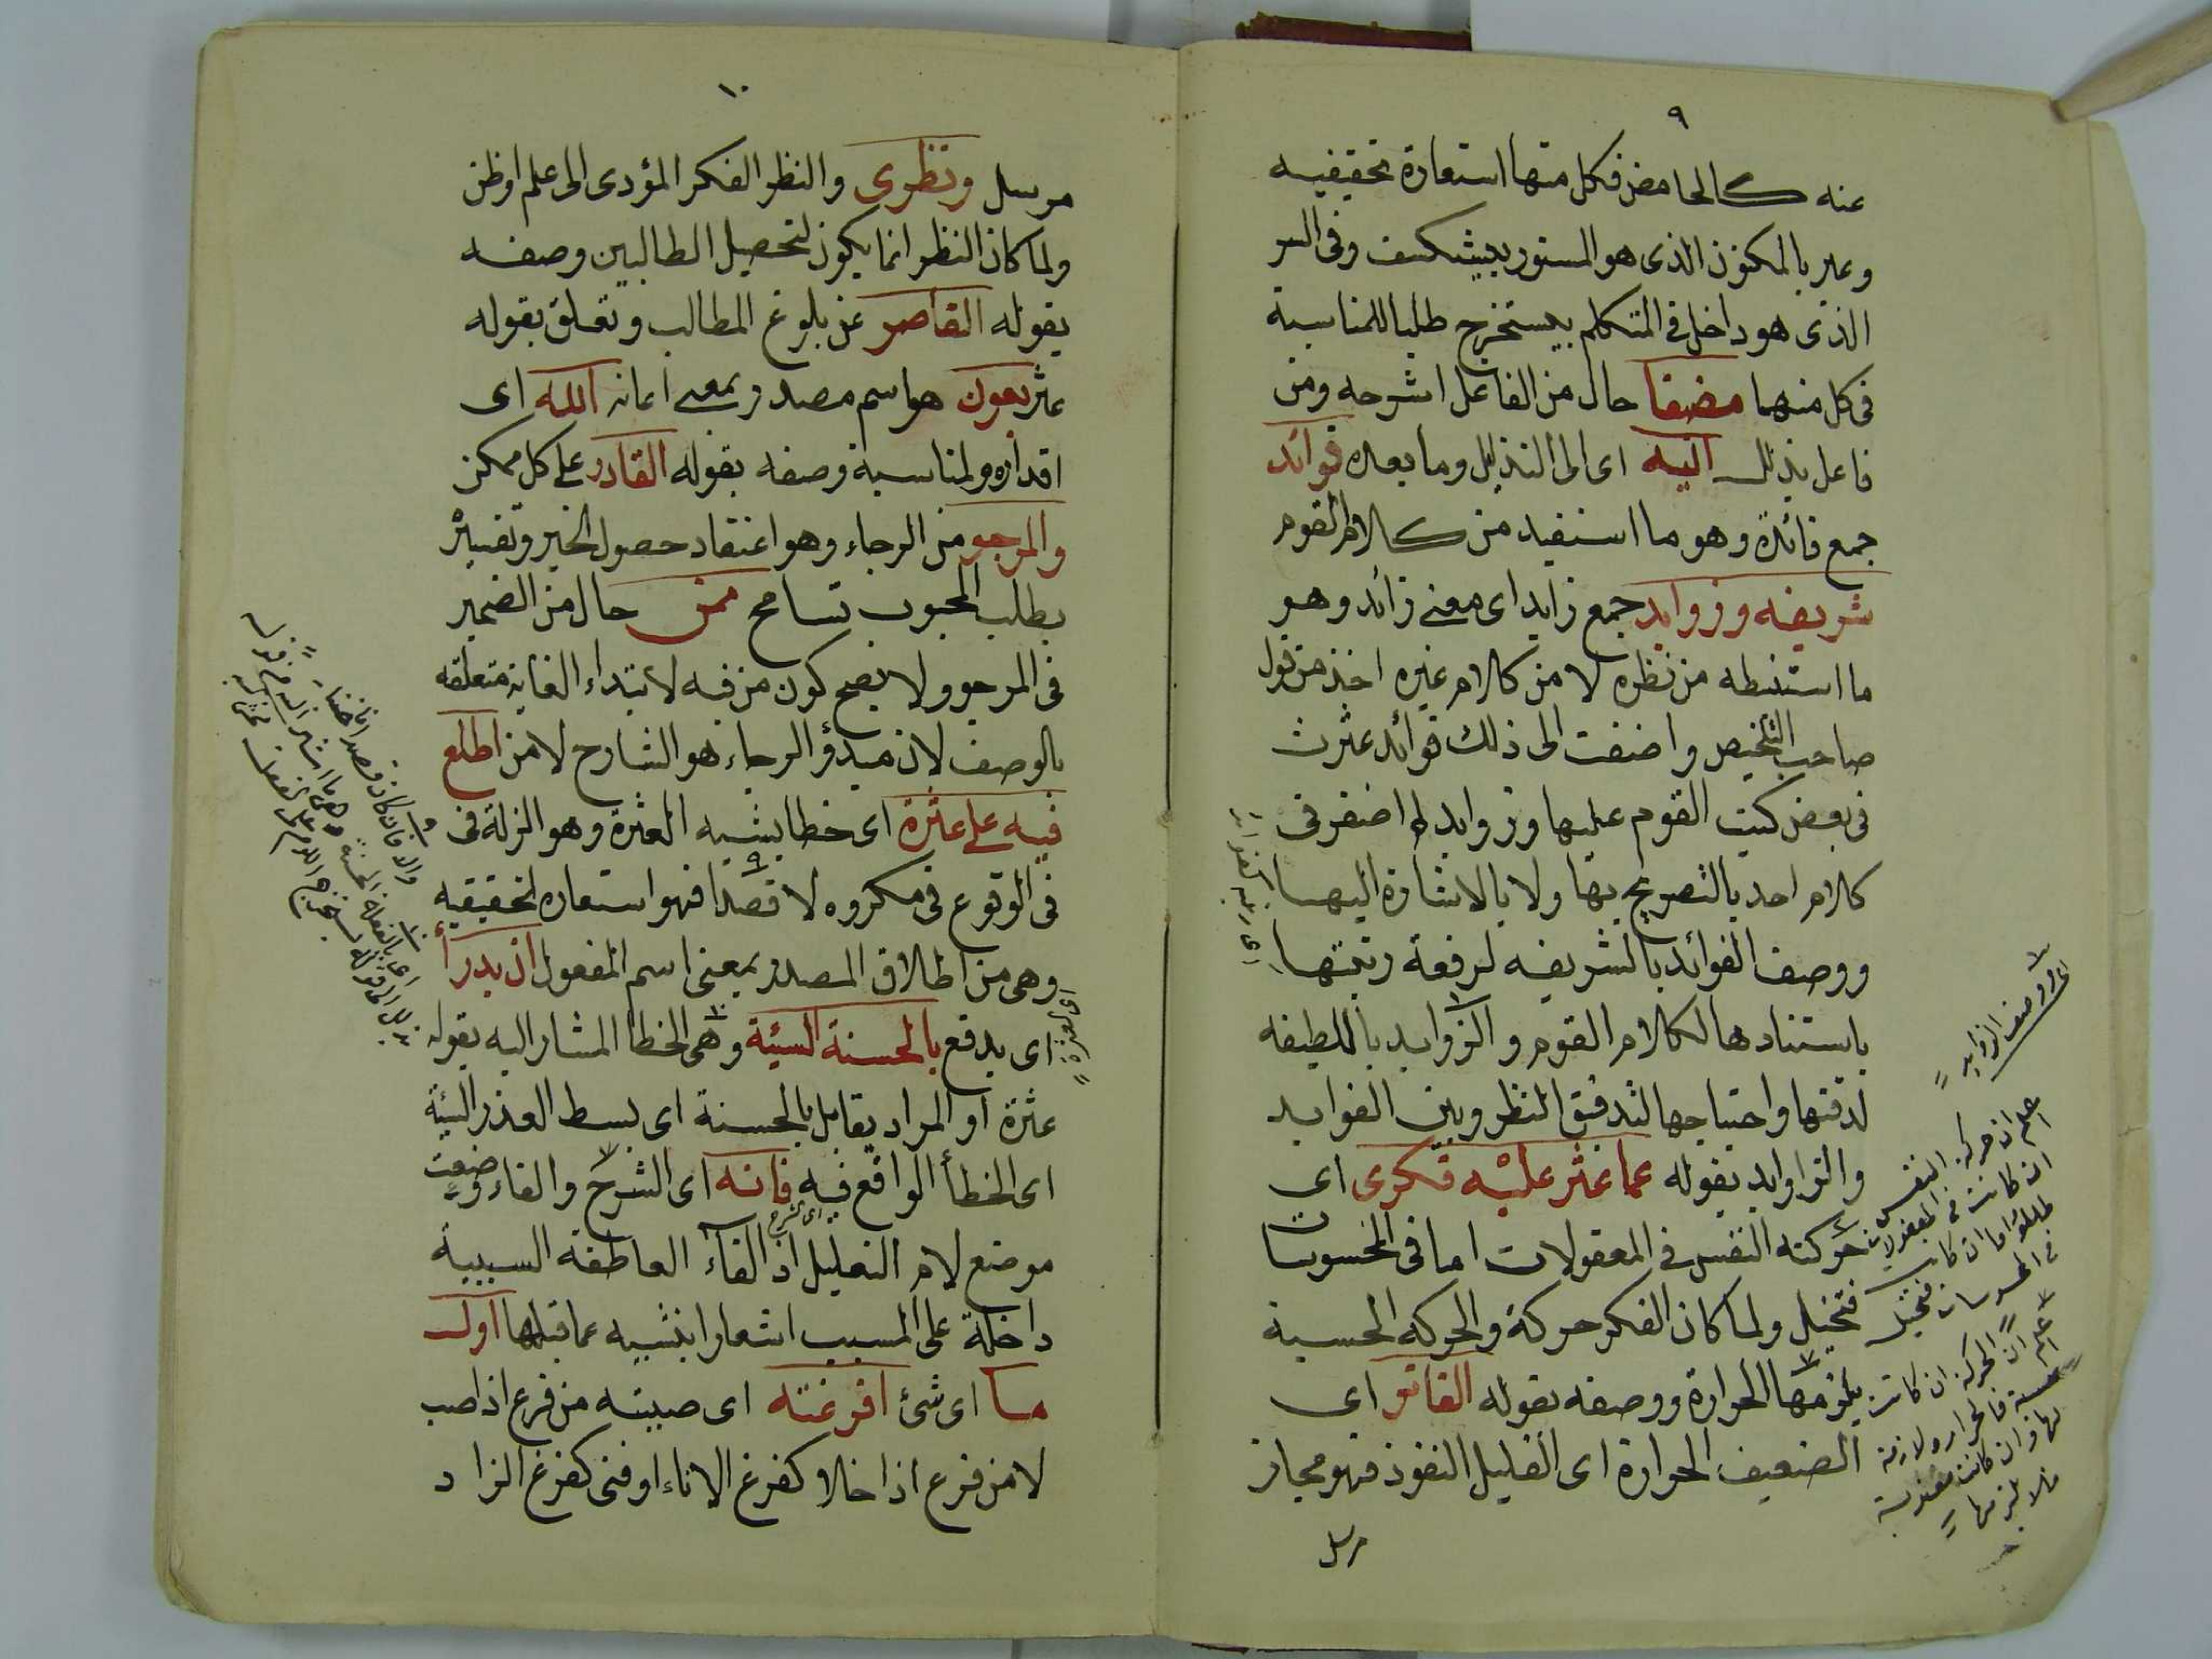 ٩
عنه كالحامض فكل منها استعارة تحقيقيه
وعبر بالمكنون الذى هو المستور بيشكف وفى السر
الذى هو داخل فى المتكلم بيستخرج طلبا للمناسبة
فى كل منهما مضيفا حال من الفاعل اشرحه ومن
فاعل بذلك اليه اى الى التذليل وما بعده فوائد
جمع فائدة وهو ما استفيد من كلام القوم
شريفه وزوايد جمع زايد اى معنى زائد وهو
ما استنبطه من نظره لا من كلام غيره اخذ من قول
صاحب التلخيص واضفت الى ذلك فوائد عثرت
فى بعض كتب القوم عليها وزوايد لم اضفر فى
كلام احد بالتصريح بها ولا بالاشارة اليها
ووصف الفوائد بالشريفه لرفعة رتبتها
باستنادها لكلام القوم والزوايد باللطيفه
لدقتها واحتياجها لتدقيق النظر وبين الفوايد
والزاوايد بقوله عما عثر عليه فكرى اى
حركته النفس فى المعقولات اما فى المحسوسات
فتخيل ولما كان الفكر حركة والحركه الحسية
يلزمها الحرارة ووصفه بقوله الفاتر اى
الضعيف الحرارة اى القليل النفوذ فهو مجاز
مرسل
اى ووصف الزوايد
اعلم ان حركة النفس
ان كانت فى المعقولات
اما ان كانت
فى المحسوسات فتخيل
اعلم ان الحركة ان كانت
حسية فالحرارة لازمة
لها وان كانت معنوية
فلا يلزمها
١٠
مرسل ونظرى والنظر الفكر المؤدى الى علم او ظن
ولما كان النظر انما يكون لتحصيل الطالبين وصفه
بقوله القاصر عن بلوغ المطالب وتعلق بقوله
عثر بعون هو اسم مصدر بمعنى اعانه الله اى
اقداره ولمناسبة وصفه بقوله القادر على كل ممكن
والمرجو من الرجاء وهو اعتقاد حصول الخير وتفسير
بطلب المحبوب تسامح ممن حال من الضمير
فى المرجو ولا يصح كون من فيه لابتداء الغايه متعلقه
بالوصف لان مبدؤ الرجاء هو الشارح لا من اطلع
فيه على عثرة اى خطا يشبه العثرة وهو الزلة فى
فى الوقوع فى مكروه لا قصدا فهو استعاره تحقيقيه
وهى من اطلاق المصدر بمعنى اسم المفعول ان يدرأ
اى يدفع بالحسنة السيئة وهى الخطا المشار اليه بقوله
عثرة او المراد يقابل بالحسنة اى بسط العذر السيئة
اى الخطأ الواقع فيه فانه اى الشرح والفاء وضعت
موضع لام التعليل اذ الفاء العاطفة السببية
داخلة على المسبب اشعارا بتشبيه عما قبلها اول
ما اى شئ افرغته اى صببته من فرغ اذا صب
لا من فرغ اذا خلا كفرغ الاناء او فنى كفرغ الزاد
اى العثرة
اى الشرح